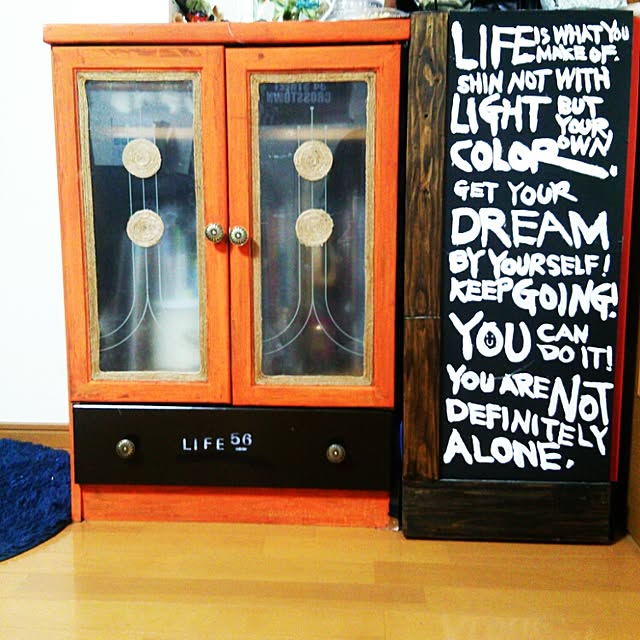 LIFE IS WHAT YOU
MAKE OF.
SHIN NOT WITH
LIGHT BUT
YOUR
OWN
COLOR.
GET YOUR
DREAM
BY YOURSELF!
KEEP GOING!
YOU CAN
DO IT!
YOU ARE NOT
DEFINITELY
ALONE.
CROSSTOWN
LIFE 56